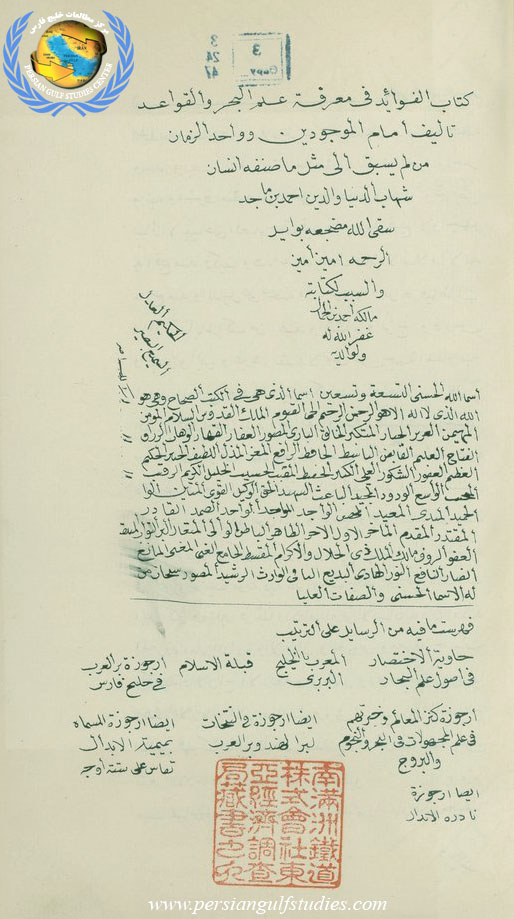 مرکز مطالعات خلیج فارس
IRAN
PERSIAN GULF STUDIES CENTER
3
24
47
3
Copy
كتاب الفوائد فى معرفة علم البحر والقواعد
تاليف امام الموجودين وواحد الزمان
من لم يسبق الى مثل ما صنفه انسان
شهاب الدنيا والدين احمد بن ماجد
سقى الله مضجعه بوابل
الرحمه امين امين
والسبب لكتابته
مالكه احمد بن
غفر الله له
ولوالديه
اسما الله الحسنى التسعة وتسعين اسما الذى هى فى الكتب الصحاح وهى هو
الله الذى لا اله الا هو الرحمن الرحيم الحى القيوم الملك القدوس السلام المومن
المهيمن العزيز الجبار المتكبر الخالق البارى المصور الغفار القهار الوهاب الرزاق
الفتاح العليم القابض الباسط الخافض الرافع المعز المذل اللطيف الخبير الحكيم
العظيم الغفور الشكور العلى الكبير الحفيظ المقيت الحسيب الجليل الكريم الرقيب
المجيب الواسع الودود المجيد الباعث الشهيد الحق الوكيل القوى المتين
الحميد المبدى المعيد الواجد الماجد الواحد الصمد القادر
المقتدر المقدم الماخر الاول الاخر الظاهر الباطن الوالى المتعال البر التواب المنتقم
العفو الروف مالك الملك ذى الجلال والاكرام المقسط الجامع الغنى المغنى المانع
الضار النافع النور الهادى البديع الباقى الوارث الرشيد الصبور سبحان من
له الاسما الحسنى والصفات العليا
فهرست ما فيه من الرسايل على الترتيب
حاوية الاختصار
فى اصول علم البحار
المعرب بالخليج
البربرى
قبلة الاسلام
ارجوزة بر العرب
فى خليج فارس
ارجوزة كنز المعالمه وخيرتهم
فى علم المجهولات فى البحر والنجوم
والبروج
ايضا ارجوزة فى النتخات
لبر الهند وبر العرب
ايضا ارجوزة المسماه
بميمية الابدال
تقاس على ستة اوجه
ايضا ارجوزة
نادرة الابدال
南滿洲鐵道
株式會社東
亞經濟調查
局藏書之印
www.persiangulfstudies.com